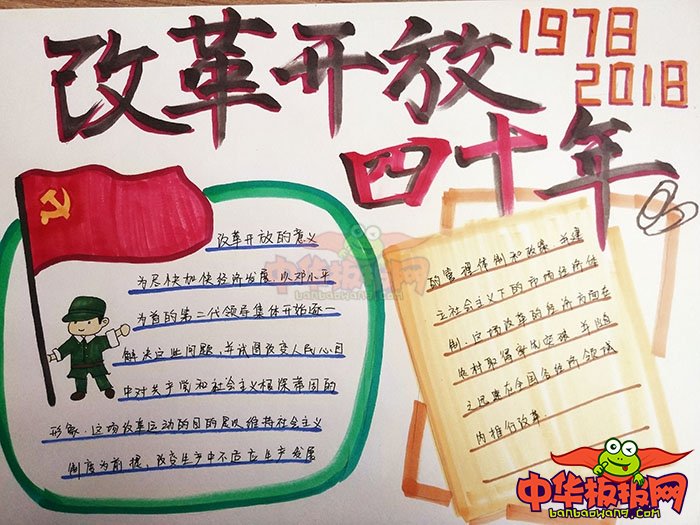 改革开放
1978
2018
四十年
改革开放的意义
为尽快加快经济发展，以邓小平
为首的第二代领导集体开始逐一
解决这些问题，并试图改变人民心目
中对共产党和社会主义根深蒂固的
形象。这场改革运动的目的是以维持社会主义
制度为前提，改变生产中不适应生产发展
的管理体制和政策，并建
立社会主义下的市场经济体
制。这场改革的经济方面在
农村取得率先突破，并随
之迅速在全国各经济领域
内推行改革。
中华板报网
banbaowang.com
中华板报网
banbaowang.com